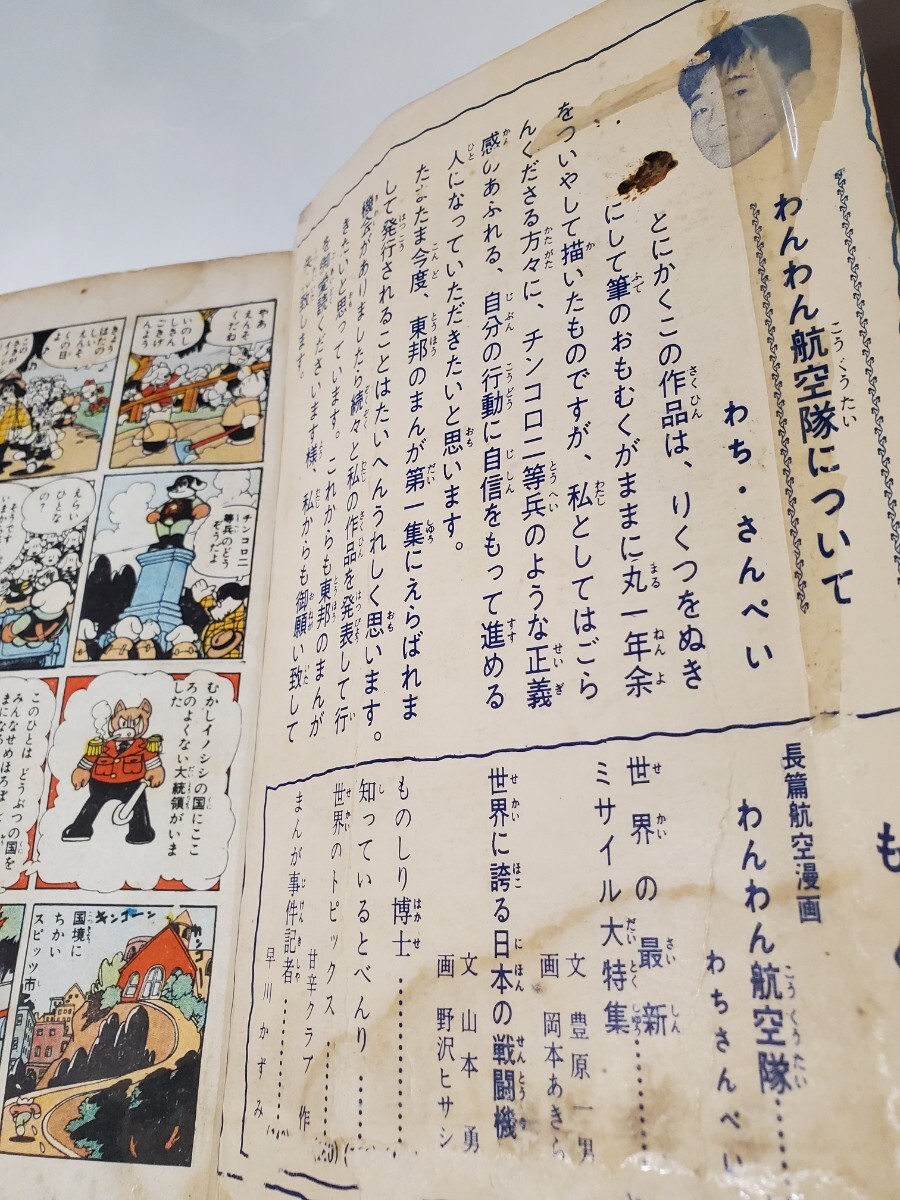 わんわん航空隊について
わち・さんぺい
とにかくこの作品は、りくつをぬき
にして筆のおもむくがままに丸一年余
をついやして描いたものですが、私としてはごら
んくださる方々に、チンコロ二等兵のような正義
感のあふれる、自分の行動に自信をもって進める
人になっていただきたいと思います。
たまたま今度、東邦のまんが第一集にえらばれま
して発行されることはたいへんうれしく思います。
機会がありましたら続々と私の作品を発表して行
きたいと思っています。これからも東邦のまんが
を御愛読くださいます様、私からも御願い致して
致します。
も
長篇航空漫画
わんわん航空隊……
わちさんぺい
世界の最新
ミサイル大特集……
文 豊原一男
画 岡本あきら
世界に誇る日本の戦闘機
文 山本 勇
画 野沢ヒサシ
ものしり博士……
知っているとべんり……
世界のトピックス……
甘辛クラブ 作
まんが事件記者……
早川かずみ
やあ
えんそ
くだね
いのし
しさん
ごきげ
んよう
きょう
はたの
しい
えんそ
くの日
この
チンコロ二
等兵のどう
ぞうだよ
えらい
ひとな
の?
そうです
むかしイノシシの国にここ
ろのよくない大統領がいま
した
このひとは どうぶつの国を
みんなせめほろぼ
キンコーン
カン
国境に
ちかい
スピッツ市